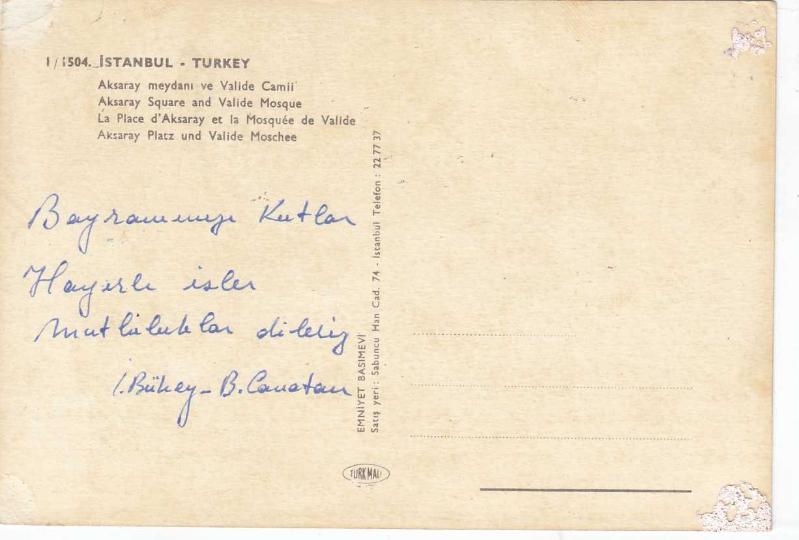 1/1504. İSTANBUL - TURKEY
Aksaray meydanı ve Valide Camii
Aksaray Square and Valide Mosque
La Place d'Aksaray et la Mosquée de Valide
Aksaray Platz und Valide Moschee
Bayramınızı Kutlar
Hayırlı işler
mutluluklar dileriz
İ. Bükey - B. Canatan
EMNİYET BASIMEVİ
Satış yeri : Sabuncu Han Cad. 74 - İstanbul Telefon : 22 77 37
TÜRK MALI